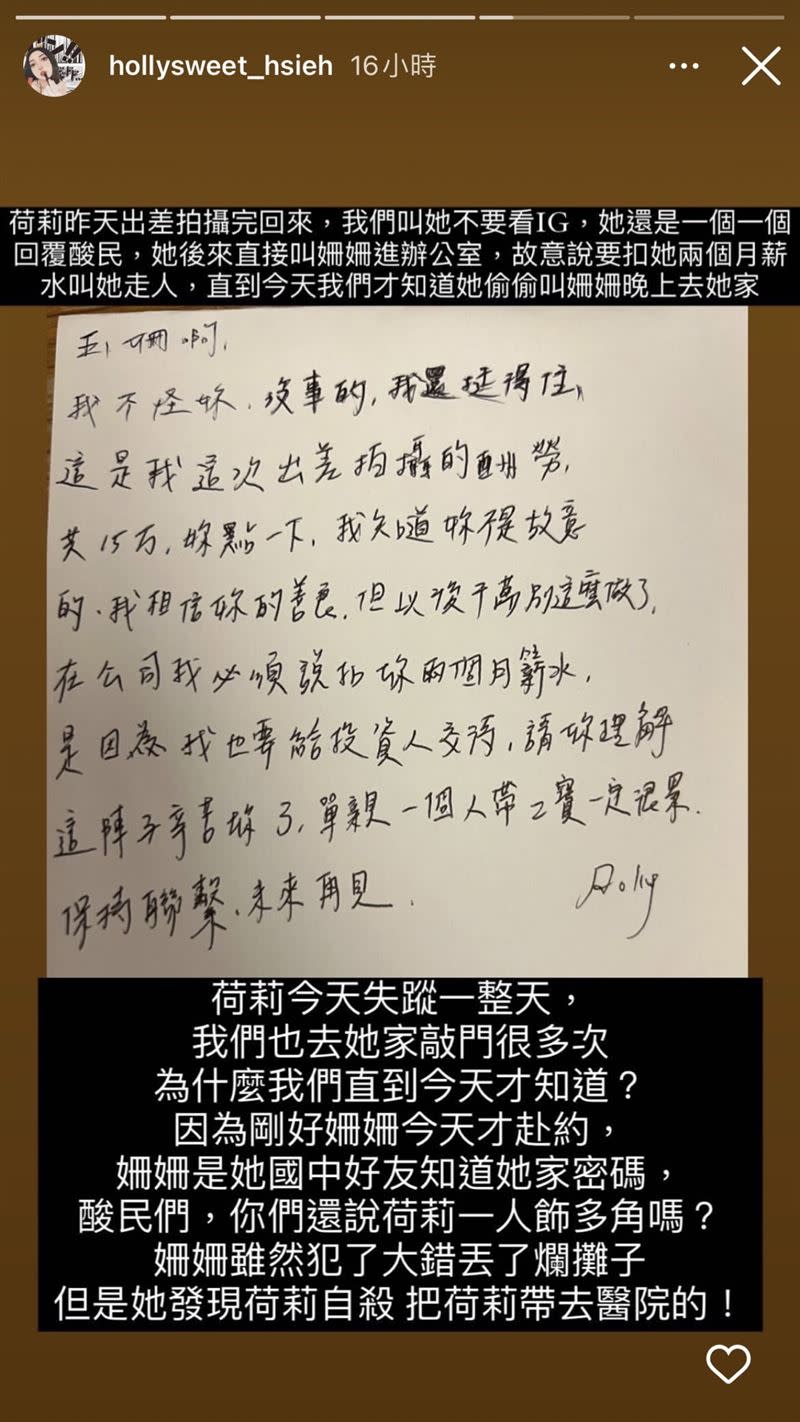 hollysweet_hsieh 16小時
荷莉昨天出差拍攝完回來，我們叫她不要看IG，她還是一個一個
回覆酸民，她後來直接叫姍姍進辦公室，故意說要扣她兩個月薪
水叫她走人，直到今天我們才知道她偷偷叫姍姍晚上去她家
姍啊，
我不怪妳，沒事的，我還挺得住，
這是我這次出差拍攝的酬勞，
共15万，妳點一下，我知道妳不是故意
的、我相信妳的善良，但以後千萬別這麼做了，
在公司我必須說扣妳兩個月薪水，
是因為我也要給投資人交待，請妳理解
這陣子辛苦妳了，單親一個人帶2寶一定很累．
保持聯繫、未來再見．
Holly
荷莉今天失蹤一整天，
我們也去她家敲門很多次
為什麼我們直到今天才知道？
因為剛好姍姍今天才赴約，
姍姍是她國中好友知道她家密碼，
酸民們，你們還說荷莉一人飾多角嗎？
姍姍雖然犯了大錯丟了爛攤子
但是她發現荷莉自殺 把荷莉帶去醫院的！